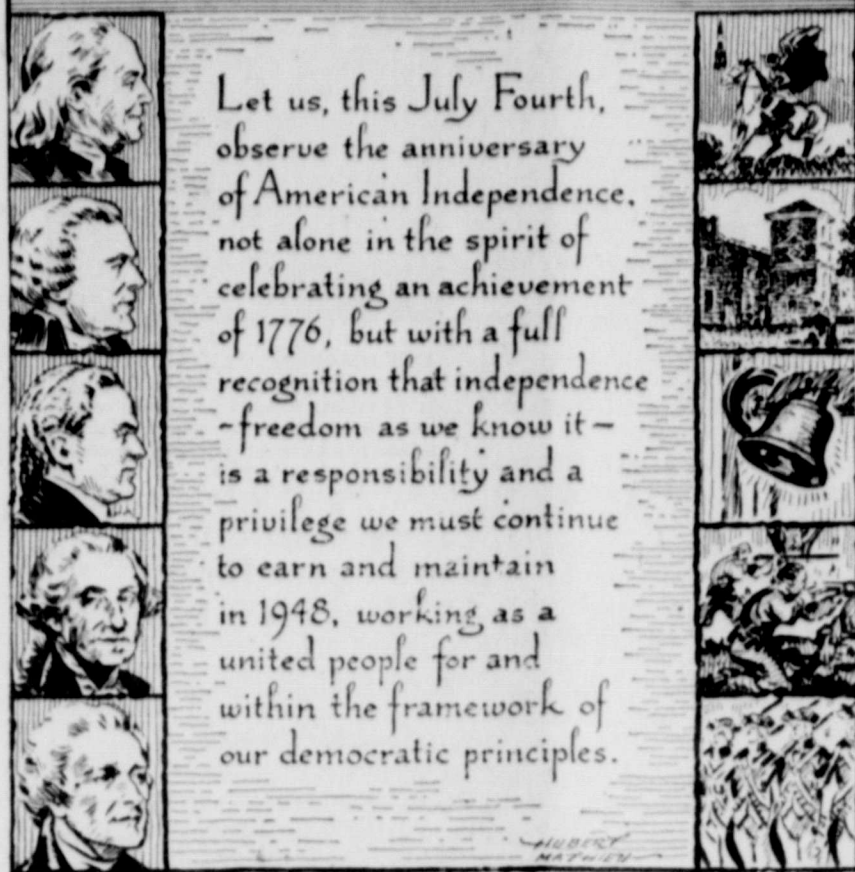 Let us, this July Fourth,
observe the anniversary
of American Independence,
not alone in the spirit of
celebrating an achievement
of 1776, but with a full
recognition that independence
-freedom as we know it-
is a responsibility and a
privilege we must continue
to earn and maintain
in 1948, working as a
united people for and
within the framework of
our democratic principles.
HUBERT
MATHIEU